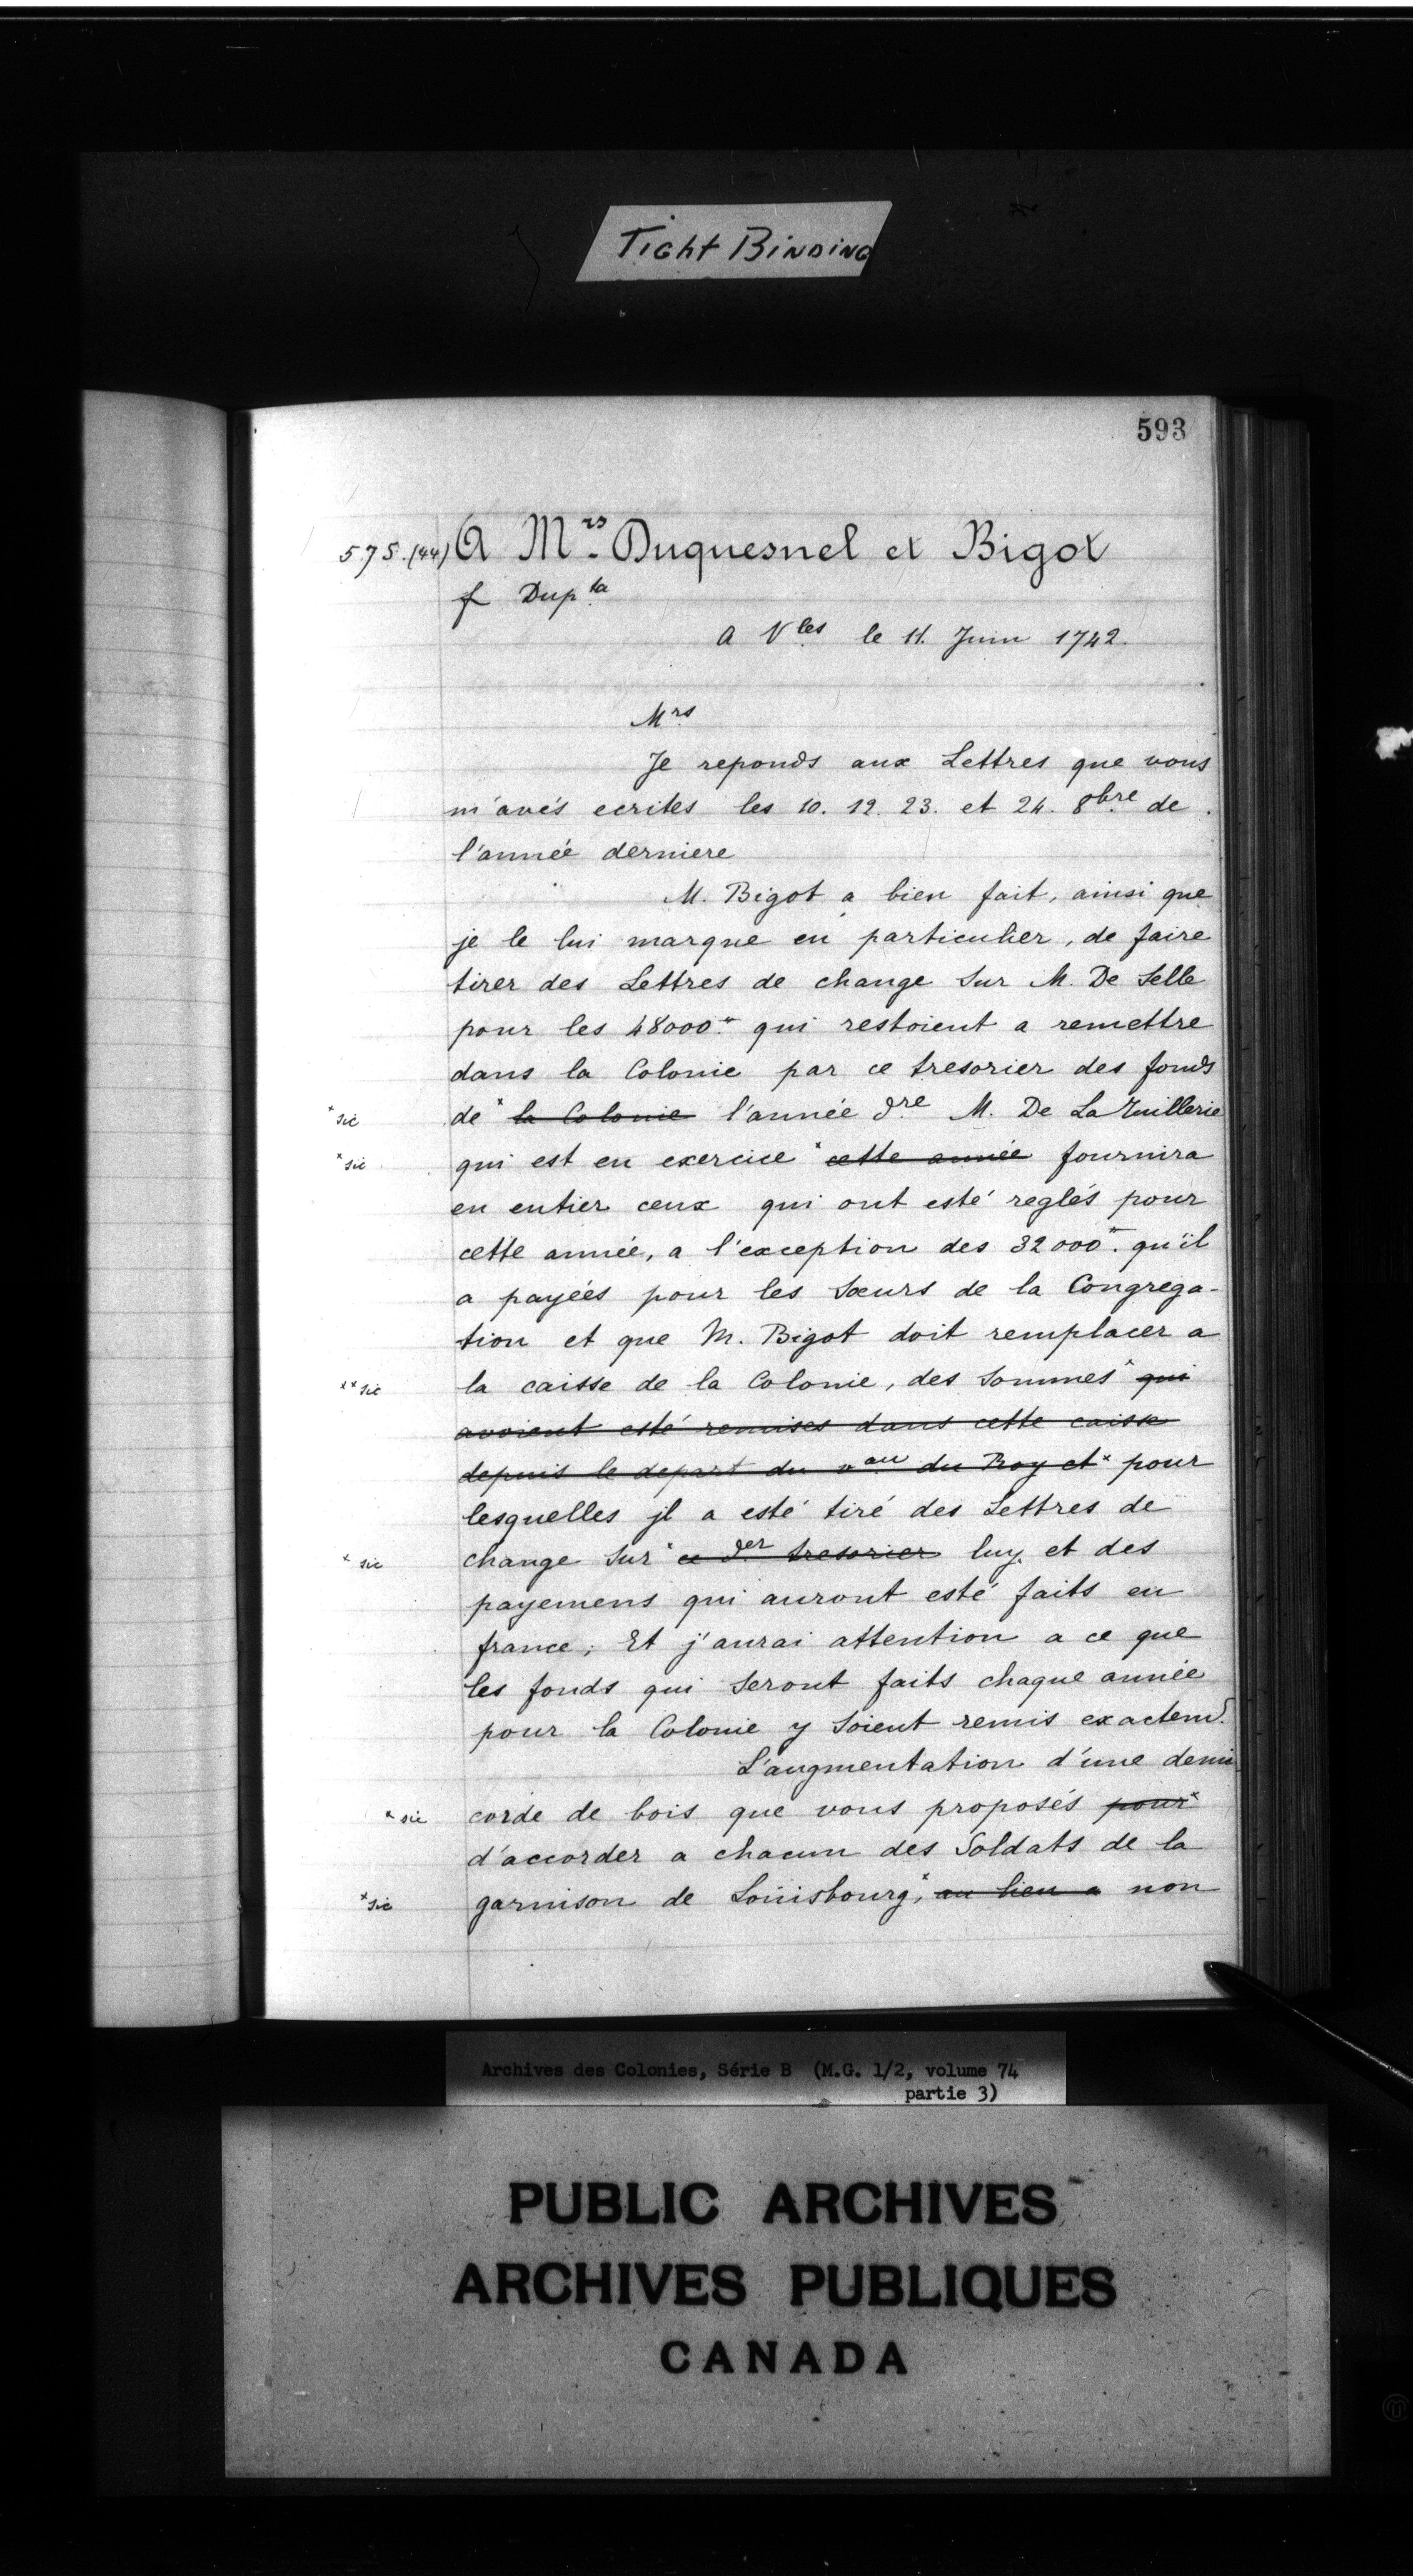 Tight Binding
593
575. (44) A Mrs. Duquesnel et Bigot
f Dup.ta
A Vles le 11. Juin 1742.
Mrs
Je reponds aux Lettres que vous
m'avés ecrites les 10. 12. 23. et 24. 8bre de
l'année derniere
M. Bigot a bien fait, ainsi que
je le lui marque en particulier, de faire
tirer des Lettres de change sur M. De Selle
pour les 48000.# qui restoient a remettre
dans la Colonie par ce tresorier des fonds
*sic de * la Colonie l'année dre M. De La
*sic qui est en exercice * cette année fournira
en entier ceux qui ont esté reglés pour
cette année, a l'exception des 32000.# qu'il
a payéés pour les Sœurs de la Congrega-
tion et que M. Bigot doit remplacer a
** sic la caisse de la Colonie, des Sommes * qui
avoient esté remises dans cette caisse
depuis le depart du vau du Roy et * pour
lesquelles jl a esté tiré des Lettres de
* sic change sur * ce der tresorier luy, et des
payemens qui auront esté faits en
france; Et j'aurai attention a ce que
les fonds qui seront faits chaque année
pour la Colonie y soient remis exactemt.
L'augmentation d'une demi
* sic corde de bois que vous proposés pour *
d'accorder a chacun des Soldats de la
*sic garnison de Loüisbourg, * au lieu a non
Archives des Colonies, Série B (M.G. 1/2, volume 74
partie 3)
PUBLIC ARCHIVES
ARCHIVES PUBLIQUES
CANADA